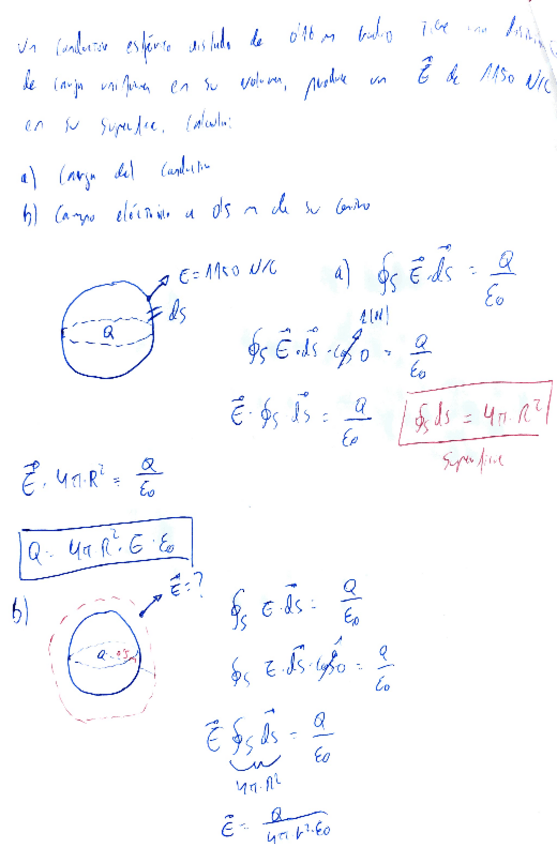 Un conductor esférico aislado de 0'16 m radio tiene una distribución
de carga uniforme en su volumen, produce un E⃗ de 1150 N/C
en su superficie. Calcular:
a) Carga del conductor
b) Campo eléctrico a 0'5 m de su centro
E = 1150 N/C
ds
Q
a) ∮s E⃗·ds⃗ = Q/ε0
∮s E⃗·ds⃗·cos 0 = Q/ε0
E⃗·∮s ds⃗ = Q/ε0
∮s ds = 4π·R²
Superficie
E⃗·4π·R² = Q/ε0
Q = 4πR²·E·ε0
b)
E⃗ = ?
∮s E·ds⃗ = Q/ε0
∮s E·ds⃗·cos 0 = Q/ε0
E⃗ ∮s ds⃗ = Q/ε0
4π·R²
E⃗ = Q/4πr²·ε0